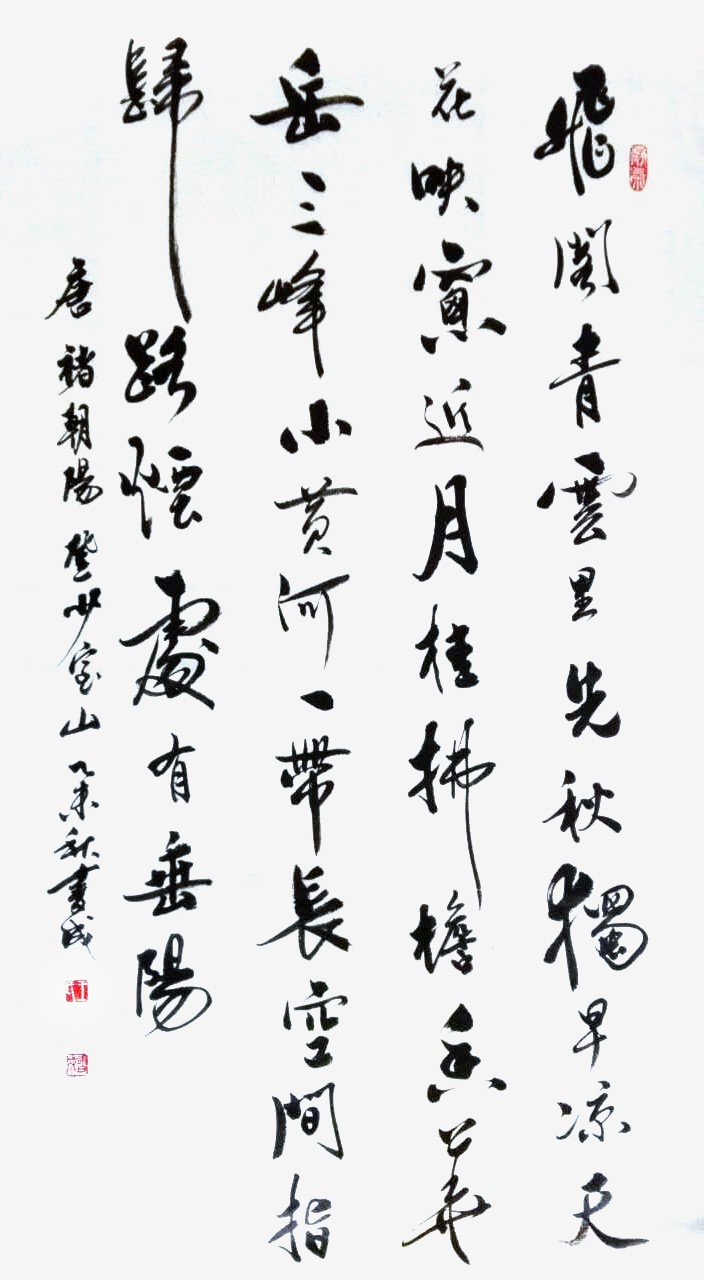 飛閣青雲里先秋獨早凉天
花映窗近月桂拂檐香華
岳三峰小黄河一帶長空間指
歸路煙處有垂陽
唐 褚朝陽登少室山 乙未秋書成